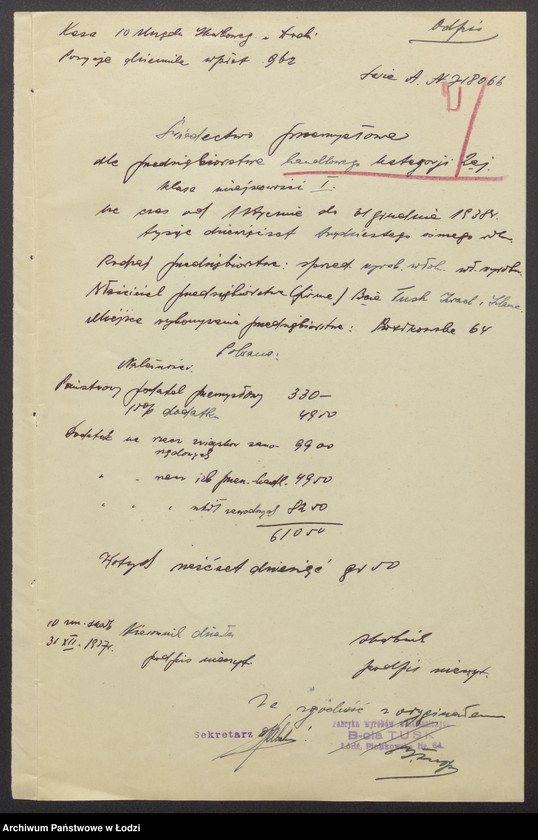 Odpis
Kasa 10 Urzędu Skarbowego w Łodzi
Pozycja dziennika wpłat 962
Serja A. № 718066
Świadectwo Przemysłowe
dla przedsiębiorstwa handlowego kategorji 2ej.
klasa miejscowości I.
na czas od 1 stycznia do 31 grudnia 1938 r.
tysiąc dziewięćset trzydziestego ósmego
Rodzaj przedsiębiorstwa: sprzed. wyrob. włók. wł. wyrobu
Właściciel przedsiębiorstwa (firma) B-cia Tusk
Miejsce wykonywania przedsiębiorstwa: Piotrkowska 64
Pobrano:
Należności.
Państwowy podatek przemysłowy 330–
15% dodatku 49 50
Dodatek na rzecz związków samo- 99 00
rządowych
" " rzecz izb przem.-handl. 49 50
" " " szkół zawodowych 82 50
610 50
Złotych sześćset dziesięć gr 50
10 Urz. Skarb.
31 XII. 1937 r.
Kierownik działu
podpis nieczyt.
Skarbnik
podpis nieczyt.
Za zgodność z oryginałem
Sekretarz
Fabryka wyrobów
B-cia TUSK
Łódź, Piotrkowska Nr. 64.
Archiwum Państwowe w Łodzi